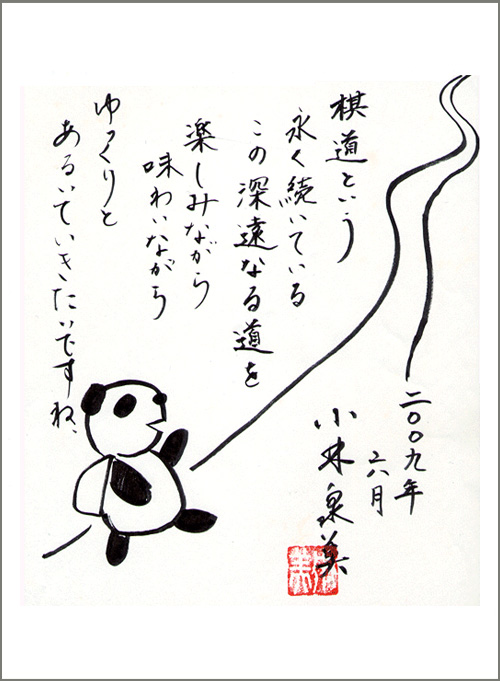 棋道という
永く続いている
この深遠なる道を
楽しみながら
味わいながら
ゆっくりと
あるいていきたいですね、
二〇〇九年
六月
小林泉美